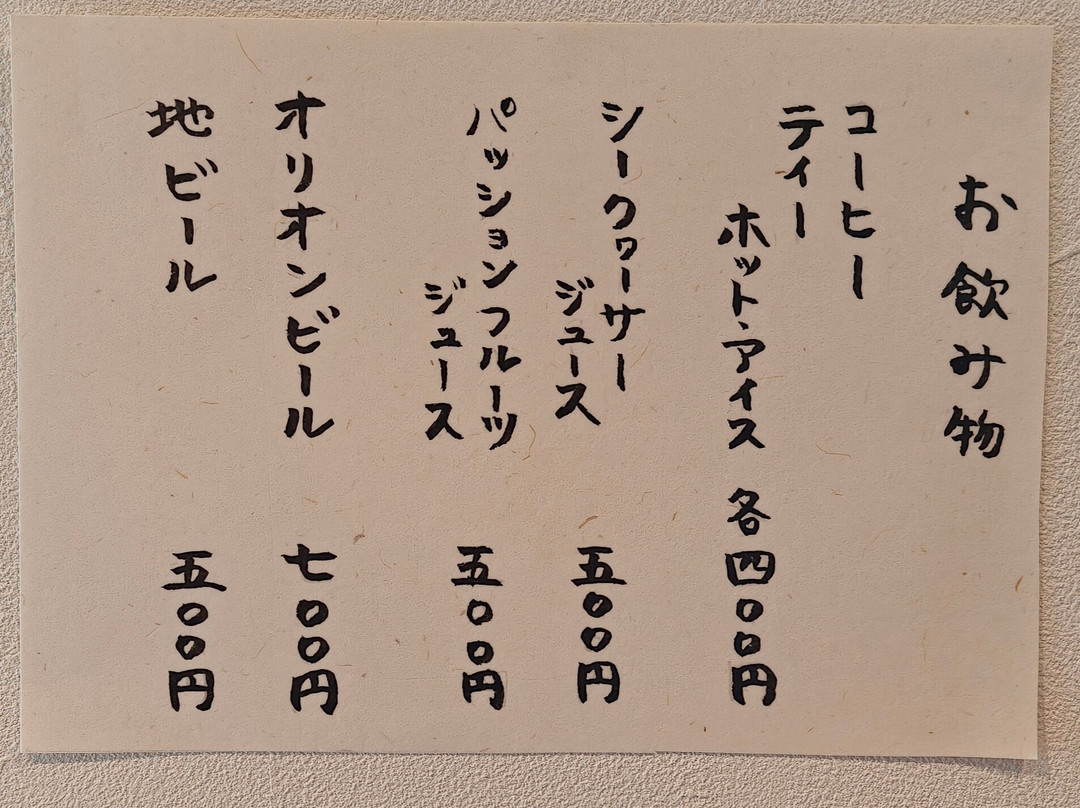 お飲み物
コーヒー
ティー
ホット・アイス 各四〇〇円
シークヮーサー
ジュース 五〇〇円
パッションフルーツ
ジュース 五〇〇円
オリオンビール 七〇〇円
地ビール 五〇〇円